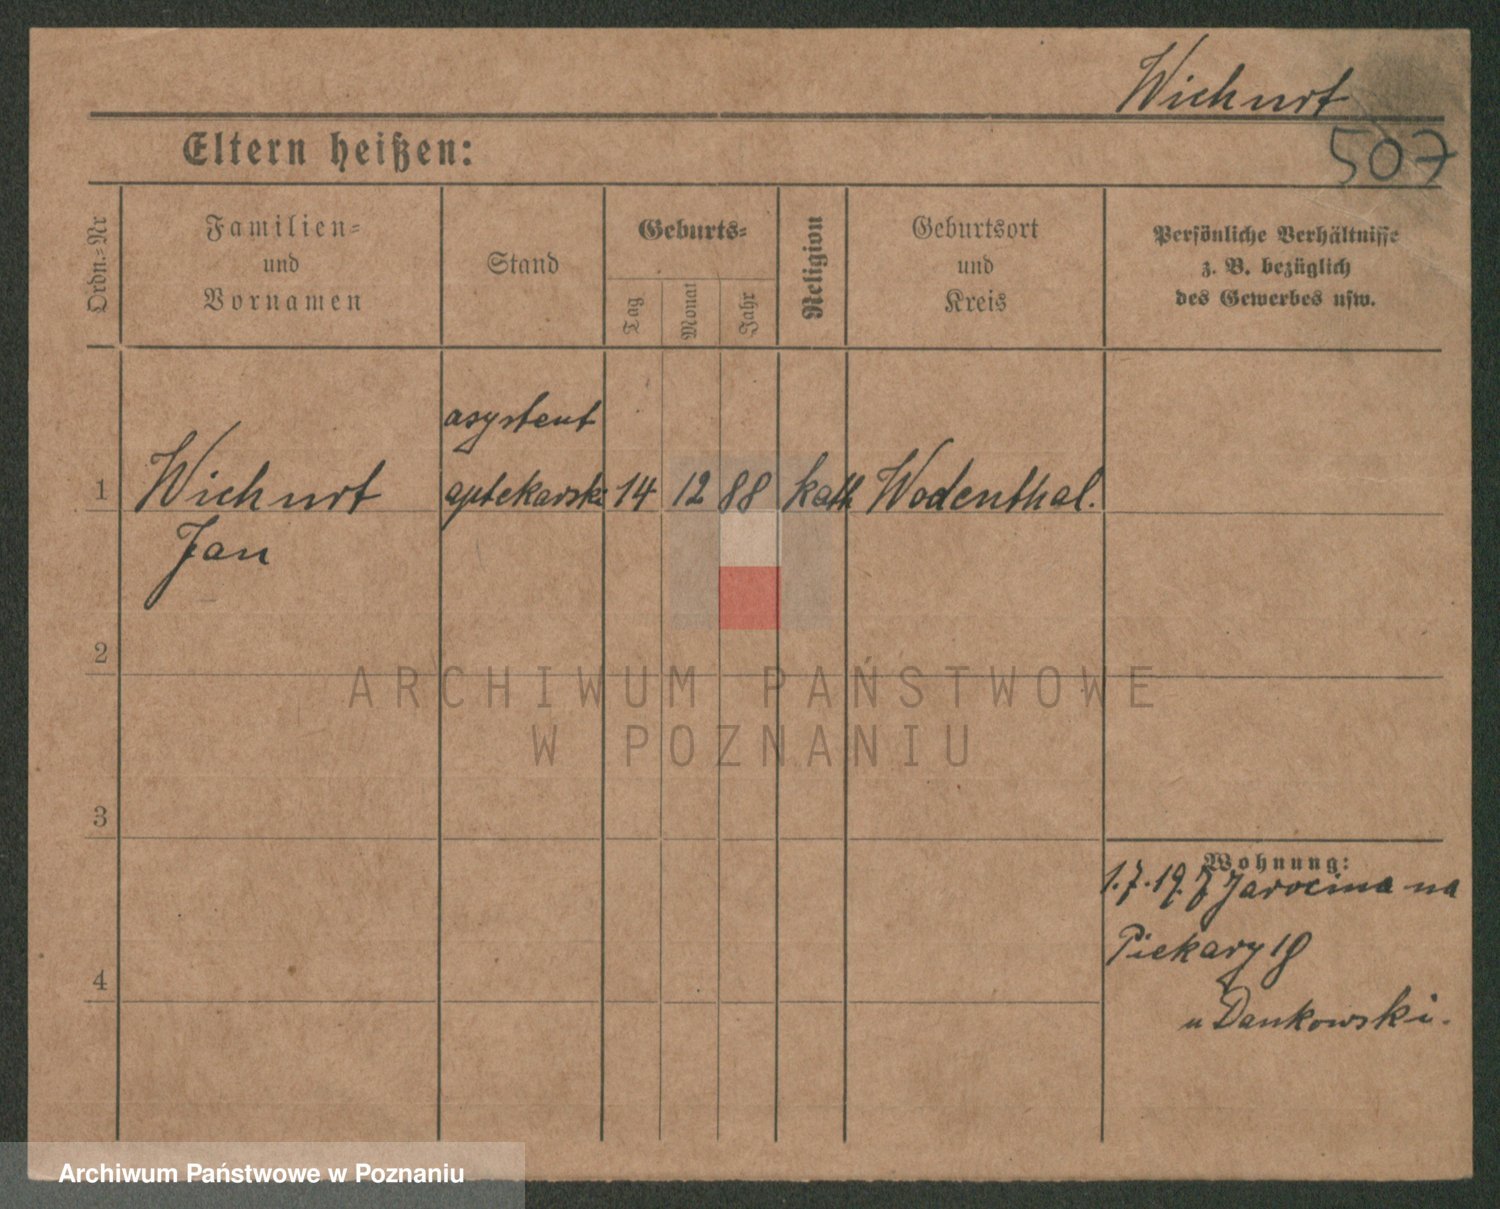 Wichurt
507
Eltern heißen:
Ordn.-Nr
Familien-
und
Vornamen
Stand
Geburts-
Tag
Monat
Jahr
Religion
Geburtsort
und
Kreis
Persönliche Verhältnisse
z. B. bezüglich
des Gewerbes usw.
asystent
1 Wichurt aptekarski 14 12 88 kath Wodenthal.
Jan
2
ARCHIWUM PAŃSTWOWE
W POZNANIU
3
Wohnung:
1.7.19. Z Jarocina na
Piekary 18
4
u Dankowski.
Archiwum Państwowe w Poznaniu